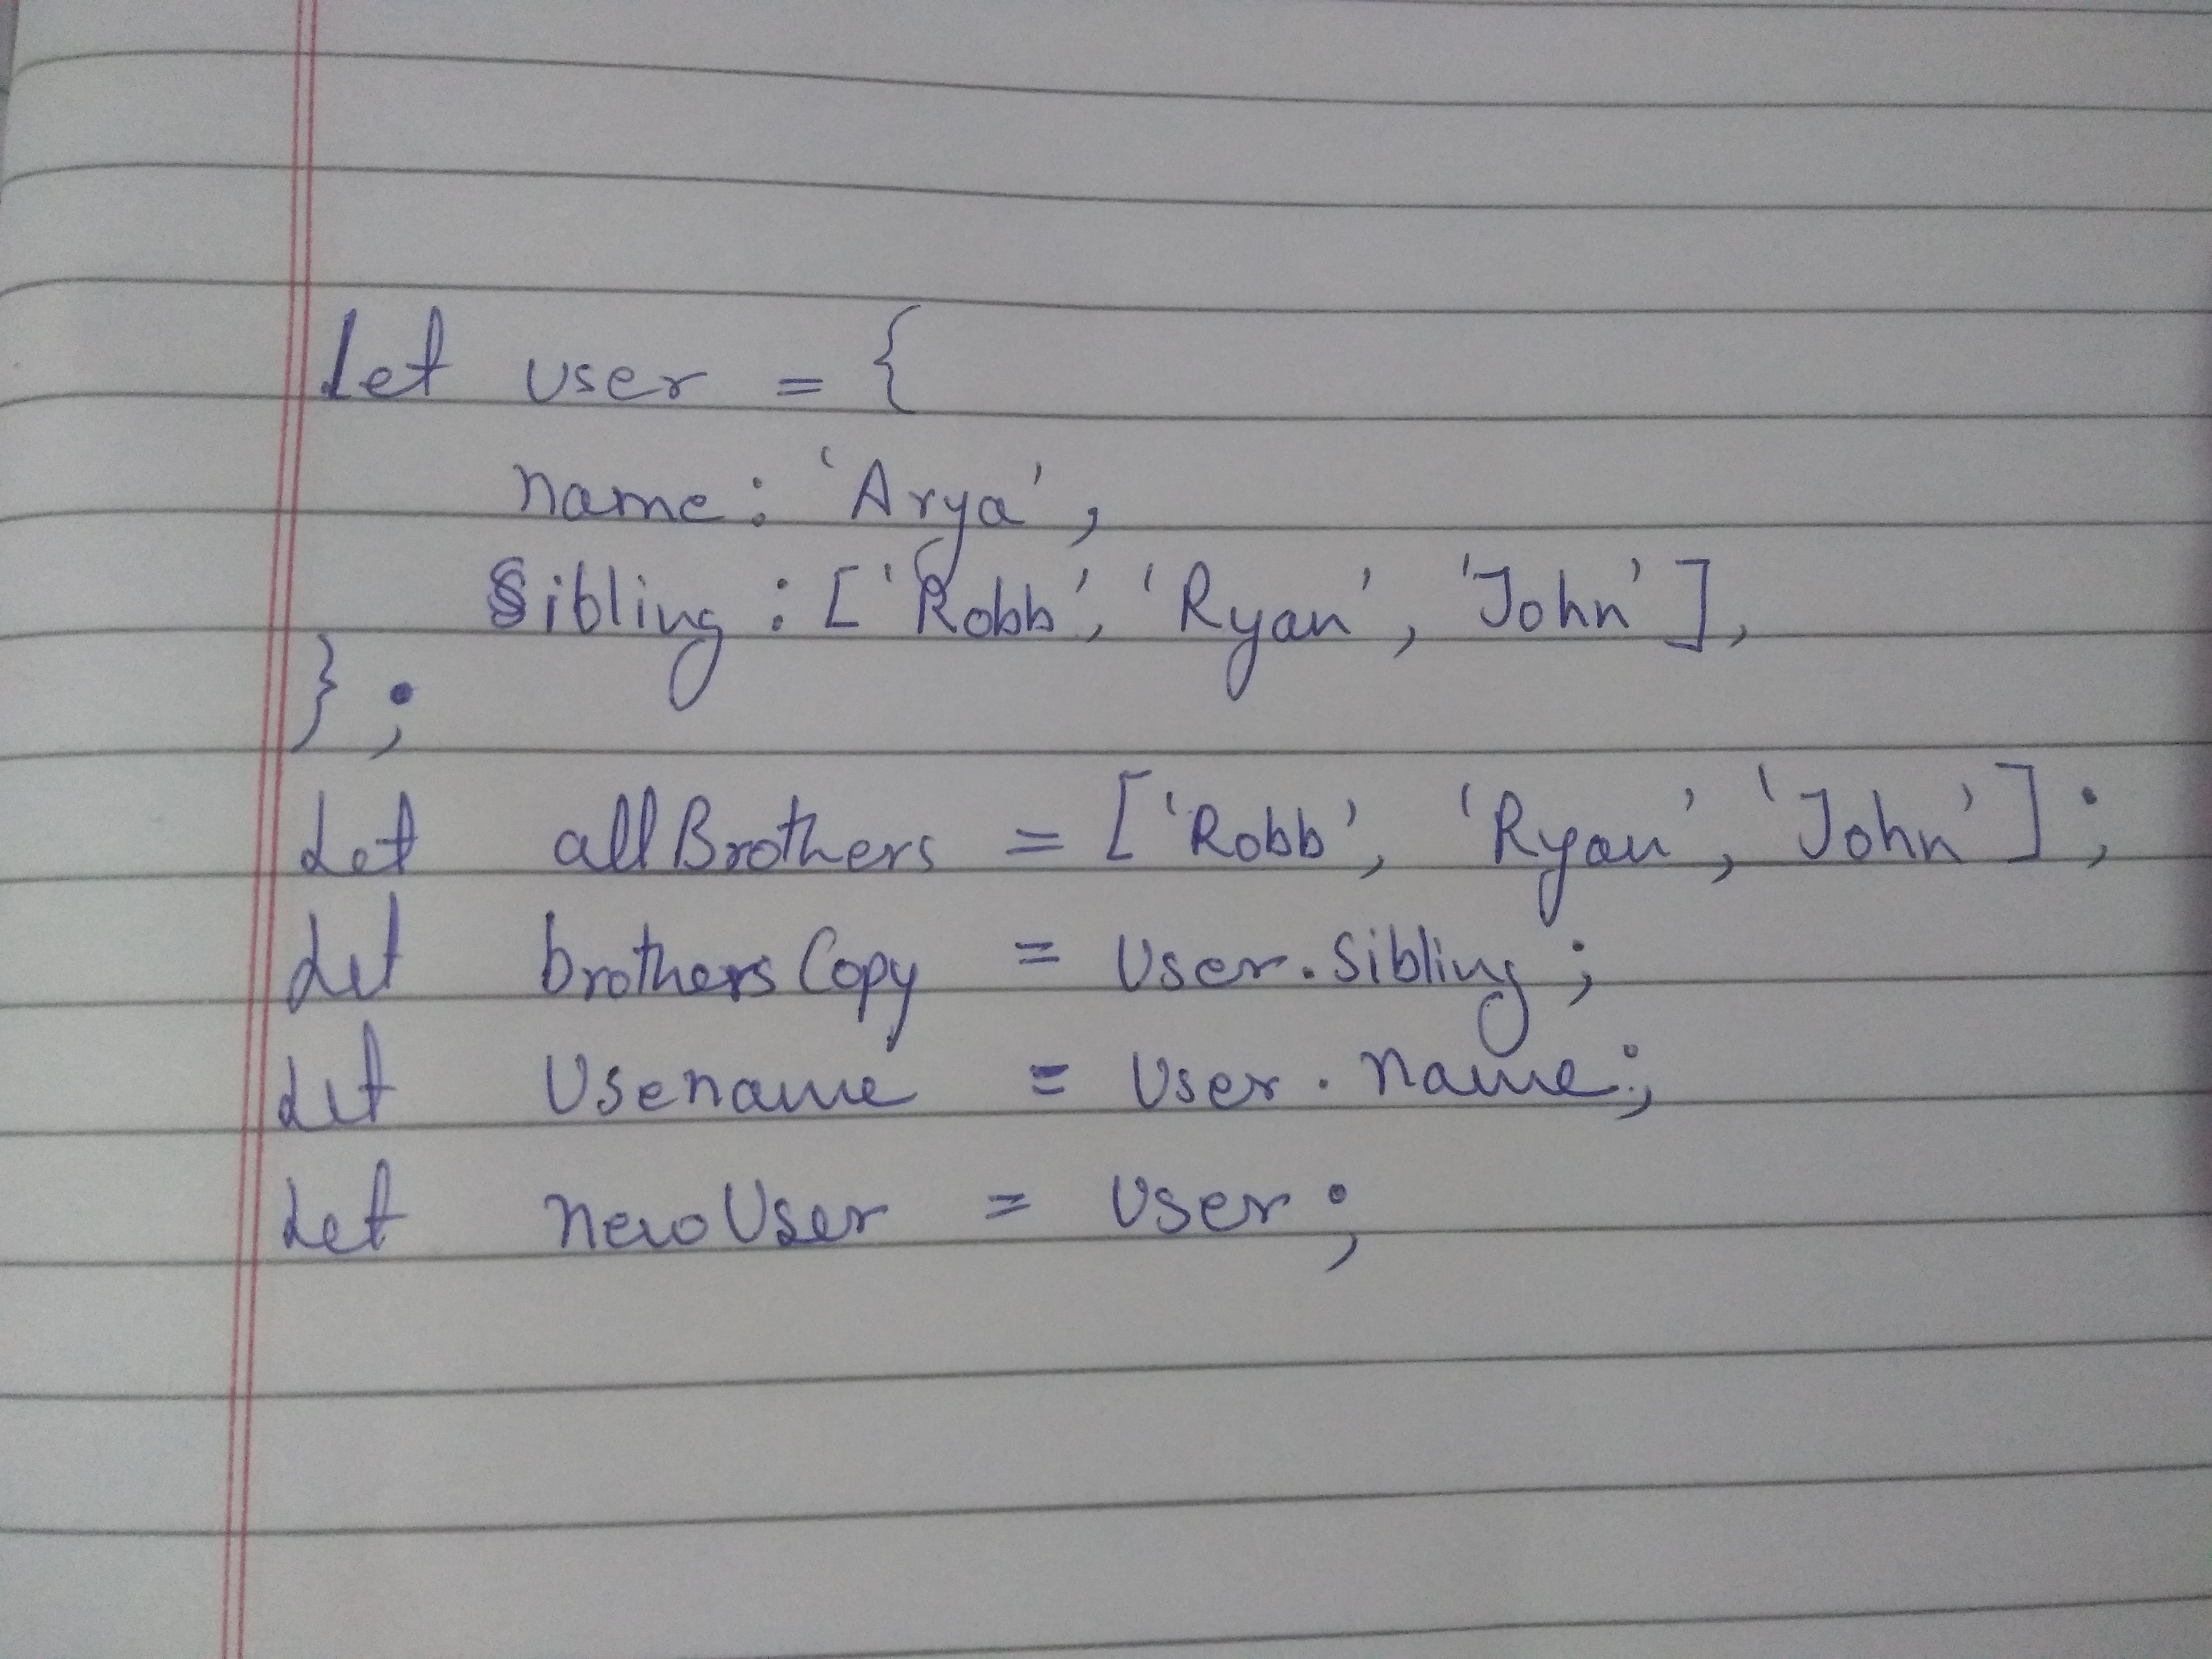 let user = {
name: 'Arya',
sibling : ['Robb', 'Ryan', 'John'],
};
let allBrothers = ['Robb', 'Ryan', 'John'];
let brothersCopy = user.sibling;
let usename = user.name;
let newUser = user;